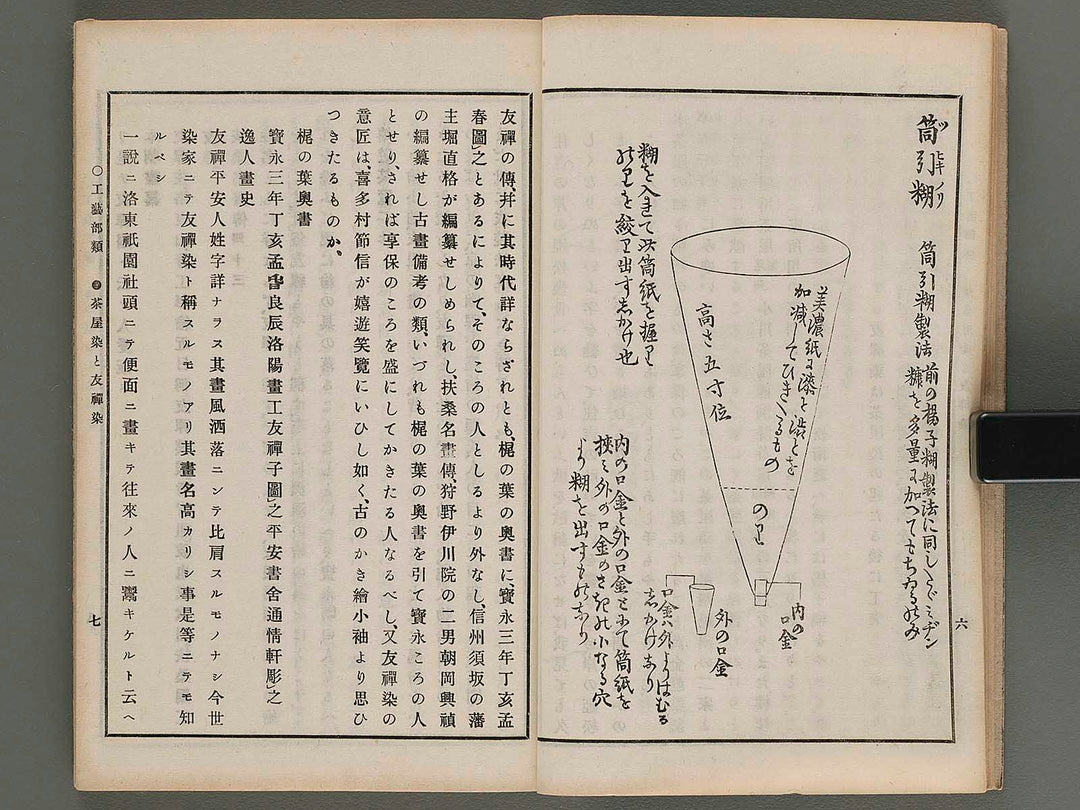 筒引糊
ツヽヒキノリ
筒引糊製法
前の楊子糊製法に同したゞミヂン
糠を多量に加へてもちゐるのみ
美濃紙に漆と渋とを
加減してひきたるもの
高さ五寸位
のり
糊を入きて此筒紙を握り
のりを絞り出すしかけ也
内の
口金
外の口金
口金ハ外よりはむる
しかけあり
内の口金と外の口金とにて筒紙を
挾ミ外の口金のさきの小なる穴
より糊を出すものなり
六
友禪の傳幷に其時代詳ならざれとも、梶の葉の奧書に、寶永三年丁亥孟
春圖」之とあるによりて、そのころの人としるより外なし、信州須坂の藩
主堀直格が編纂せしめられし、扶桑名畫傳、狩野伊川院の二男朝岡興禎
の編纂せし古畫備考の類、いづれも梶の葉の奧書を引て寶永ころの人
とせり、されば享保のころを盛にしてかきたる人なるべし、又友禪染の
意匠は、喜多村節信が嬉遊笑覽にいひし如く、古のかき繪小袖より思ひ
つきたるものか、
梶の葉奧書
寶永三年丁亥孟春良辰洛陽畫工友禪子圖」之平安書舍通情軒彫」之
逸人畫史
友禪平安人姓字詳ナラス其畫風洒落ニンテ比肩スルモノナシ今世
染家ニテ友禪染ト稱スルモノアリ其畫名高カリシ事是等ニテモ知
ルベシ
一說ニ洛東祇園社頭ニテ便面ニ畫キテ往來ノ人ニ鬻キケルト云ヘ
〇工藝部類 茶屋染と友禪染
七